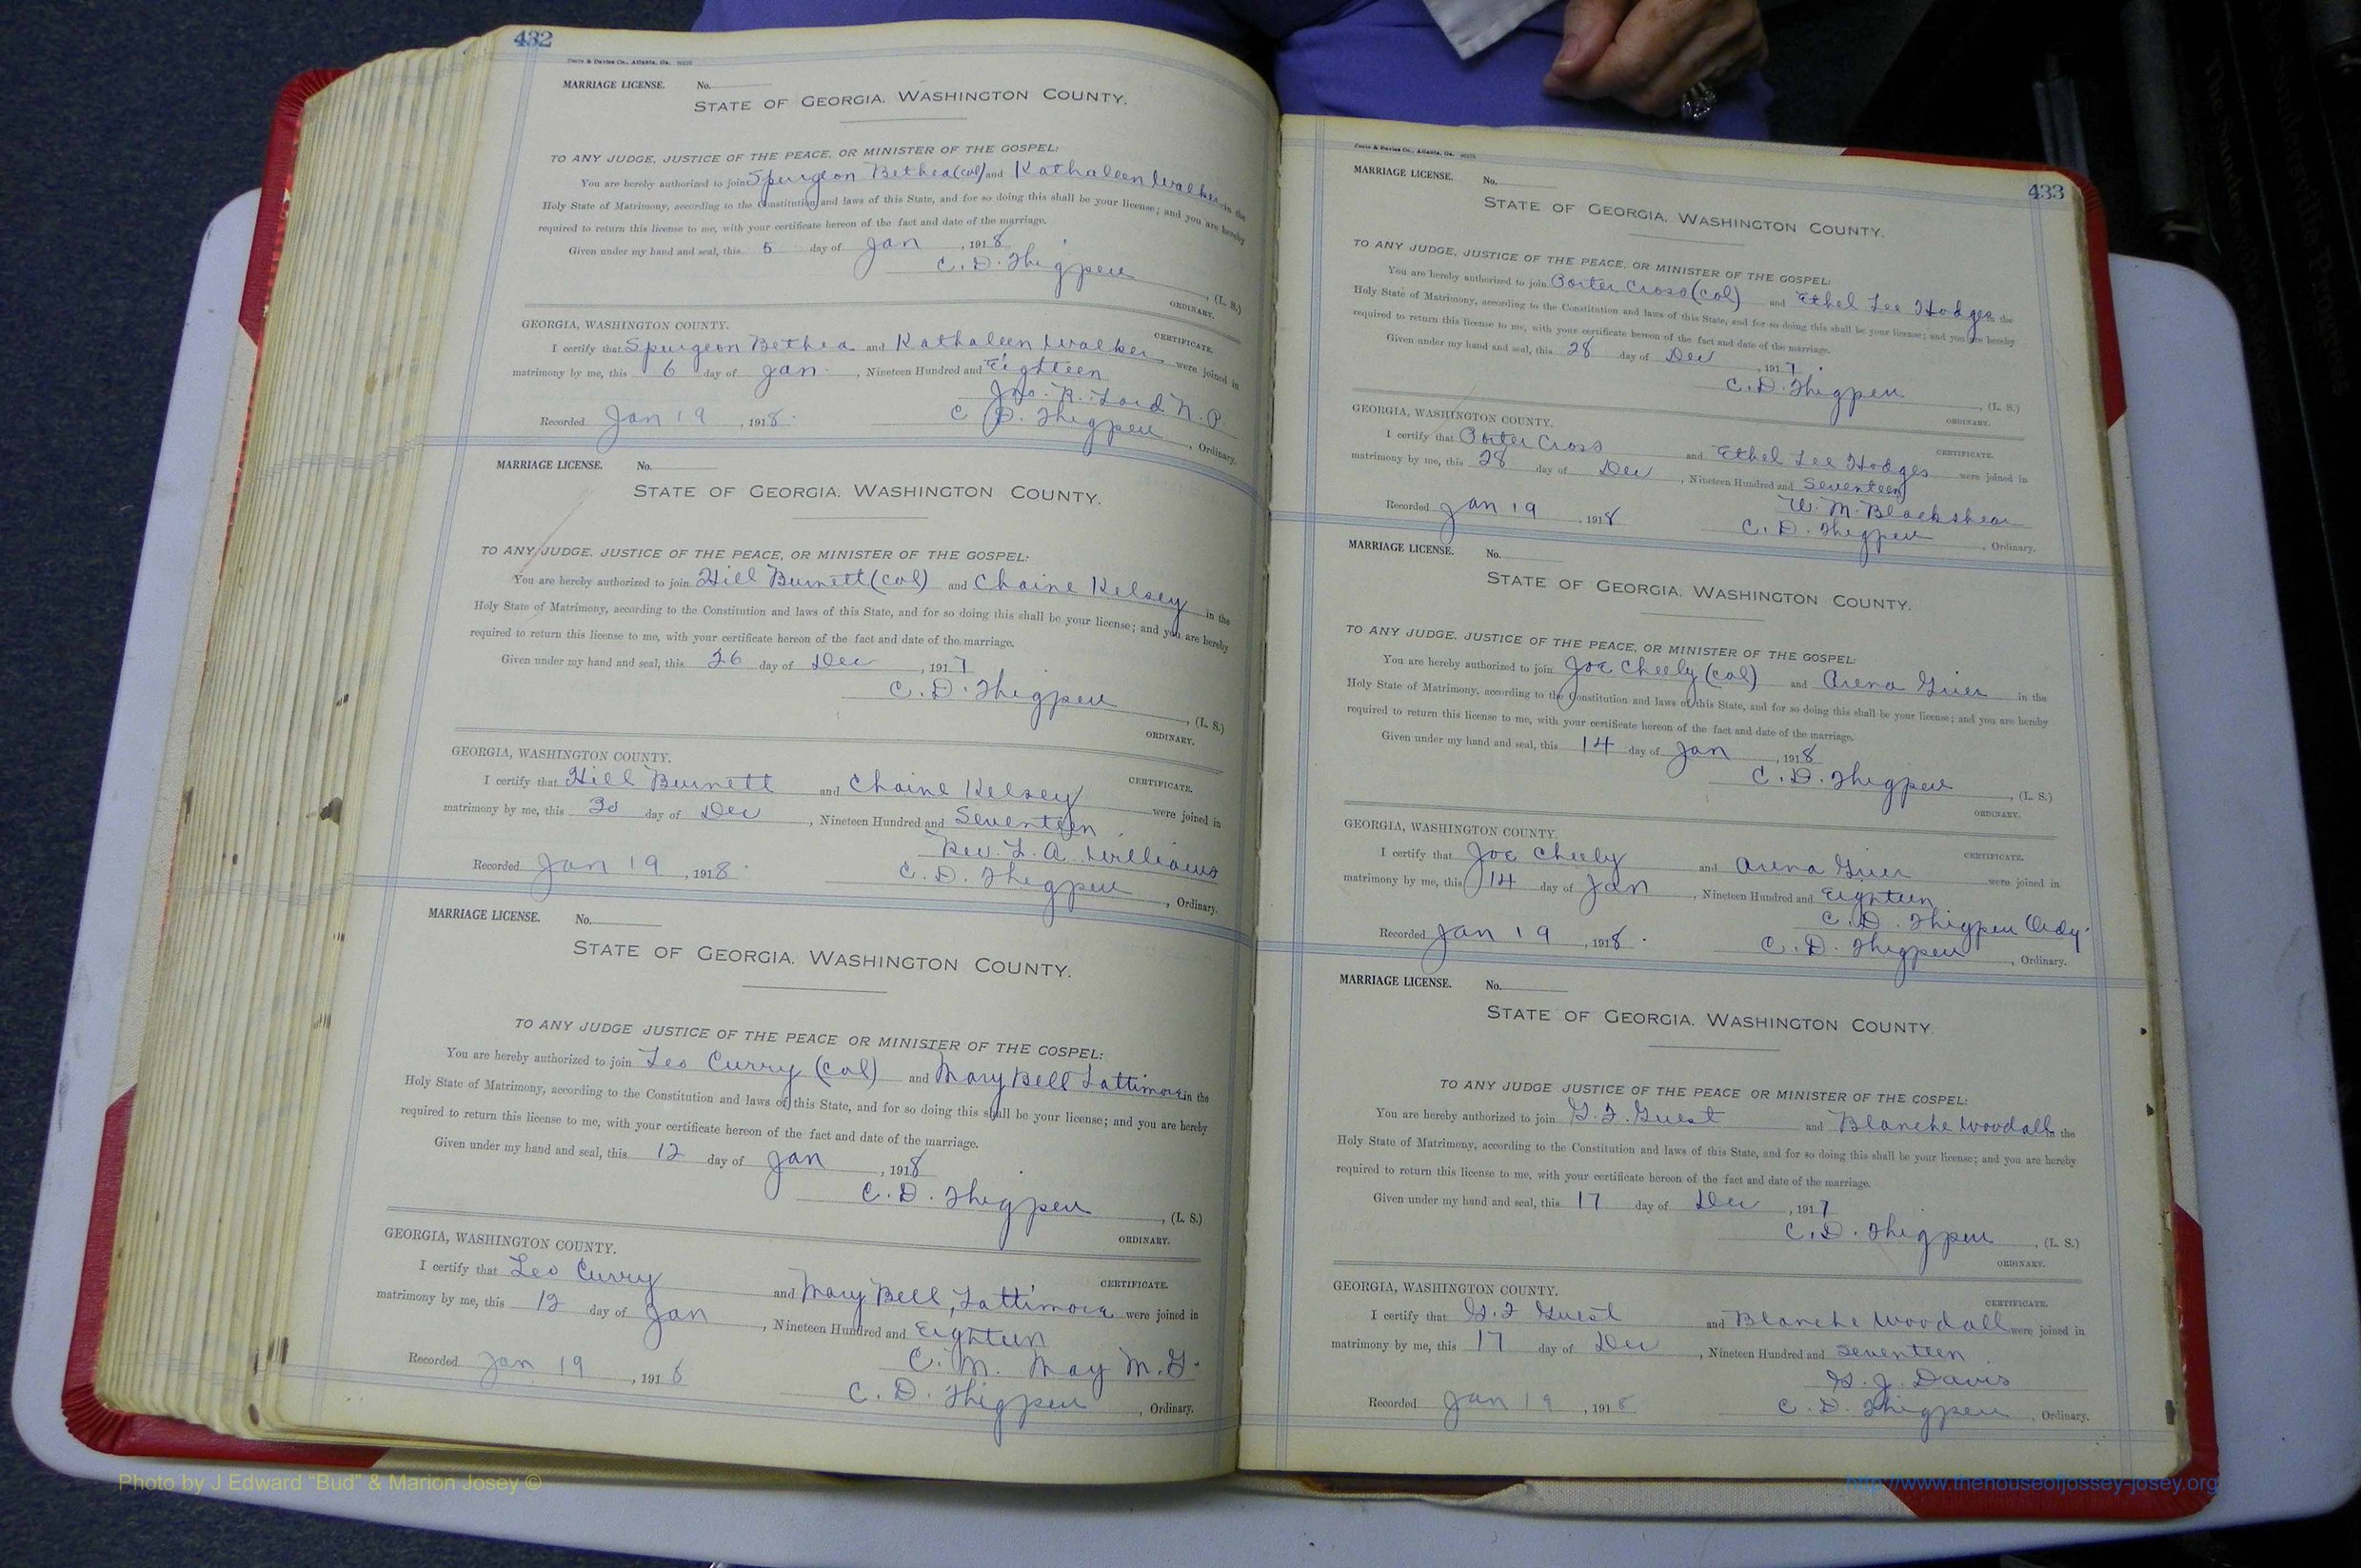 432
MARRIAGE LICENSE. No.
STATE OF GEORGIA. WASHINGTON COUNTY.
TO ANY JUDGE, JUSTICE OF THE PEACE, OR MINISTER OF THE GOSPEL:
You are hereby authorized to join Spurgeon Bethea (col) and Kathaleen Walker in the
Holy State of Matrimony, according to the Constitution and laws of this State, and for so doing this shall be your license; and you are hereby
required to return this license to me, with your certificate hereon of the fact and date of the marriage.
Given under my hand and seal, this 5 day of Jan, 1918
C. D. Thigpen, (L. S.)
ORDINARY.
GEORGIA, WASHINGTON COUNTY.
CERTIFICATE.
I certify that Spurgeon Bethea and Kathaleen Walker were joined in
matrimony by me, this 6 day of Jan., Nineteen Hundred and Eighteen
Jno. R. Lord N. P.
Recorded Jan 19, 1918. C. D. Thigpen, Ordinary.
MARRIAGE LICENSE. No.
STATE OF GEORGIA. WASHINGTON COUNTY.
TO ANY JUDGE, JUSTICE OF THE PEACE, OR MINISTER OF THE GOSPEL:
You are hereby authorized to join Hill Burnett (col) and Chaine Kelsey in the
Holy State of Matrimony, according to the Constitution and laws of this State, and for so doing this shall be your license; and you are hereby
required to return this license to me, with your certificate hereon of the fact and date of the marriage.
Given under my hand and seal, this 26 day of Dec, 1917
C. D. Thigpen, (L. S.)
ORDINARY.
GEORGIA, WASHINGTON COUNTY.
CERTIFICATE.
I certify that Hill Burnett and Chaine Kelsey were joined in
matrimony by me, this 30 day of Dec, Nineteen Hundred and Seventeen
Rev. L. A. Williams
Recorded Jan 19, 1918. C. D. Thigpen, Ordinary.
MARRIAGE LICENSE. No.
STATE OF GEORGIA. WASHINGTON COUNTY.
TO ANY JUDGE JUSTICE OF THE PEACE OR MINISTER OF THE GOSPEL:
You are hereby authorized to join Leo Curry (col) and Mary Bell Lattimore in the
Holy State of Matrimony, according to the Constitution and laws of this State, and for so doing this shall be your license; and you are hereby
required to return this license to me, with your certificate hereon of the fact and date of the marriage.
Given under my hand and seal, this 12 day of Jan, 1918
C. D. Thigpen, (L. S.)
ORDINARY.
GEORGIA, WASHINGTON COUNTY.
CERTIFICATE.
I certify that Leo Curry and Mary Bell, Lattimore were joined in
matrimony by me, this 12 day of Jan, Nineteen Hundred and Eighteen
C. M. May M. G.
Recorded Jan 19, 1918 C. D. Thigpen, Ordinary.
433
MARRIAGE LICENSE. No.
STATE OF GEORGIA. WASHINGTON COUNTY.
TO ANY JUDGE, JUSTICE OF THE PEACE, OR MINISTER OF THE GOSPEL:
You are hereby authorized to join Porter Cross (col) and Ethel Lee Hodges in the
Holy State of Matrimony, according to the Constitution and laws of this State, and for so doing this shall be your license; and you are hereby
required to return this license to me, with your certificate hereon of the fact and date of the marriage.
Given under my hand and seal, this 28 day of Dec, 1917.
C. D. Thigpen, (L. S.)
ORDINARY.
GEORGIA, WASHINGTON COUNTY.
CERTIFICATE.
I certify that Porter Cross and Ethel Lee Hodges were joined in
matrimony by me, this 28 day of Dec, Nineteen Hundred and Seventeen
W. M. Blackshear
Recorded Jan 19, 1918 C. D. Thigpen, Ordinary.
MARRIAGE LICENSE. No.
STATE OF GEORGIA. WASHINGTON COUNTY.
TO ANY JUDGE, JUSTICE OF THE PEACE, OR MINISTER OF THE GOSPEL:
You are hereby authorized to join Joe Cheely (col) and Arena Grier in the
Holy State of Matrimony, according to the Constitution and laws of this State, and for so doing this shall be your license; and you are hereby
required to return this license to me, with your certificate hereon of the fact and date of the marriage.
Given under my hand and seal, this 14 day of Jan, 1918
C. D. Thigpen, (L. S.)
ORDINARY.
GEORGIA, WASHINGTON COUNTY.
CERTIFICATE.
I certify that Joe Cheely and Arena Grier were joined in
matrimony by me, this 14 day of Jan, Nineteen Hundred and Eighteen
C. D. Thigpen Ordy.
Recorded Jan 19, 1918. C. D. Thigpen, Ordinary.
MARRIAGE LICENSE. No.
STATE OF GEORGIA. WASHINGTON COUNTY.
TO ANY JUDGE JUSTICE OF THE PEACE OR MINISTER OF THE GOSPEL:
You are hereby authorized to join G. F. Guest and Blanche Woodall in the
Holy State of Matrimony, according to the Constitution and laws of this State, and for so doing this shall be your license; and you are hereby
required to return this license to me, with your certificate hereon of the fact and date of the marriage.
Given under my hand and seal, this 17 day of Dec, 1917
C. D. Thigpen, (L. S.)
ORDINARY.
GEORGIA, WASHINGTON COUNTY.
CERTIFICATE.
I certify that G. F Guest and Blanche Woodall were joined in
matrimony by me, this 17 day of Dec, Nineteen Hundred and Seventeen
G. J. Davis
Recorded Jan 19, 1918 C. D. Thigpen, Ordinary.
Photo by J Edward “Bud” & Marion Josey ©
http://www.thehouseofjossey-josey.org